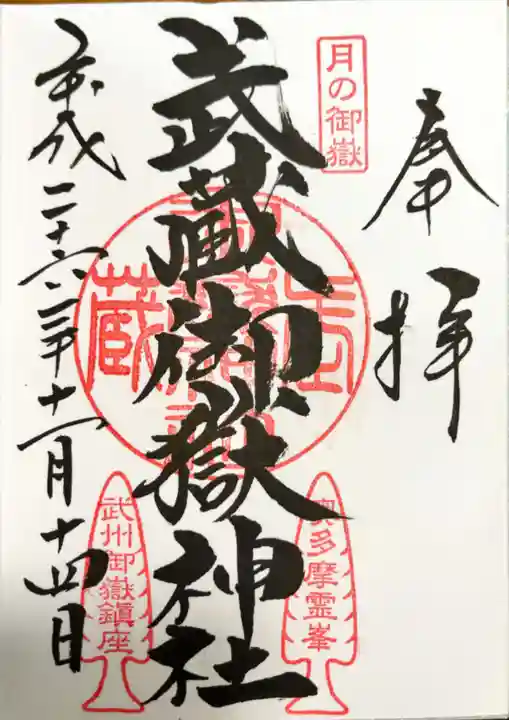 奉拝
月の御嶽
奥多摩霊峯
武蔵御嶽神社
蔵
武州御嶽鎮座
平成二十六年十一月十四日